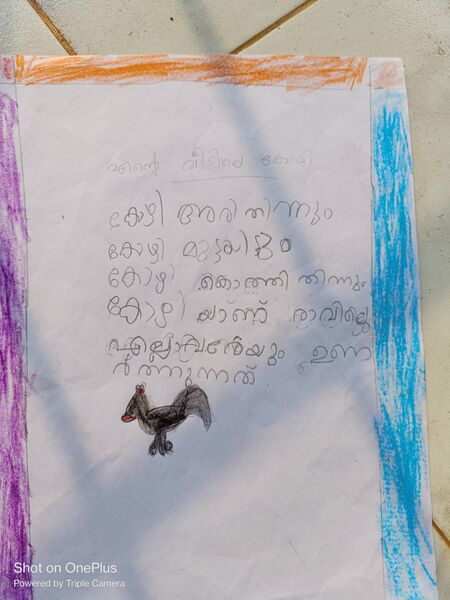 എന്റെ വീട്ടിലെ കോഴി
കോഴി അരി തിന്നും
കോഴി മുട്ടയിടും
കോഴി കൊത്തി തിന്നും
കോഴി യാണ് രാവിലെ
എല്ലാവരേയും ഉണ
ർത്തുന്നത്
Shot on OnePlus
Powered by Triple Camera